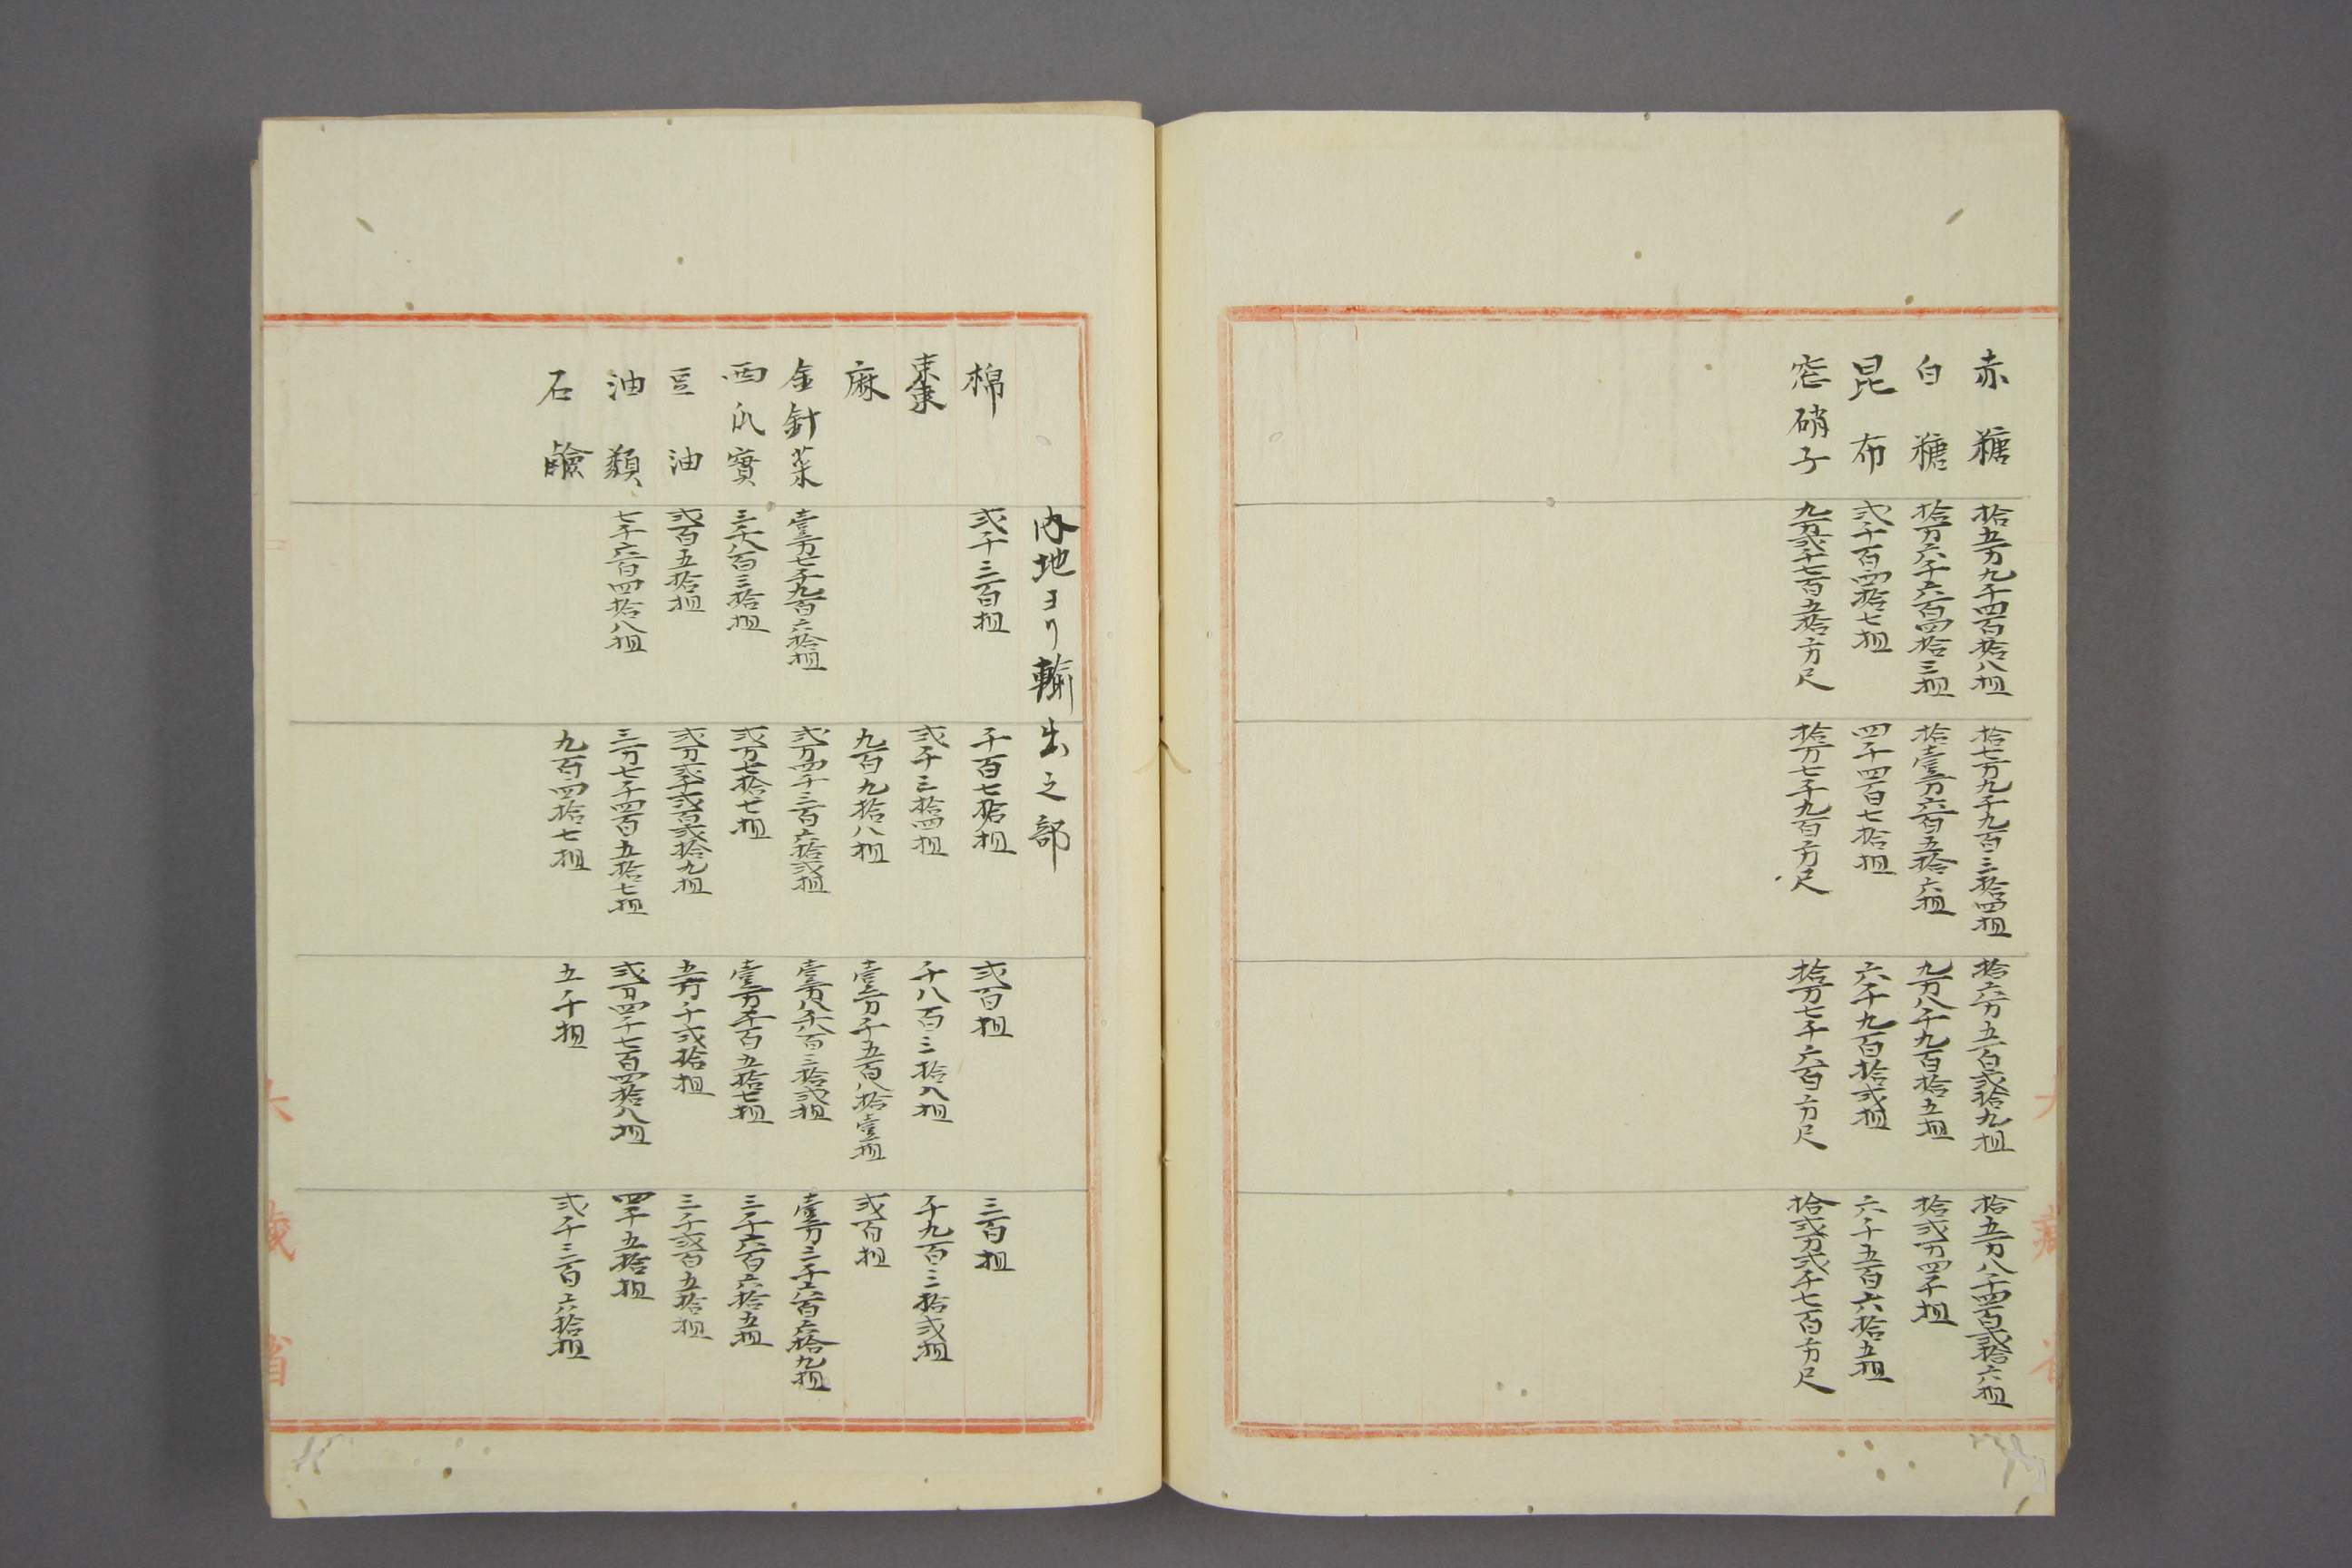 赤糖
拾五万九千四百拾八担
拾七万九千九百三拾四担
拾六万五百弐拾九担
拾五万八千四百弐拾六担
白糖
拾万六千六百四拾三担
拾壹万六百五拾六担
九万八千九百拾五担
拾弐万四千担
昆布
弐千百四拾七担
四千四百七拾担
六千九百拾弐担
六千五百六拾五担
窓硝子
九万弐千七百五拾方尺
拾万七千九百方尺
拾万七千六百方尺
拾弐万弐千七百方尺
内地ヨリ輸出之部
棉
弐千三百担
千百七拾担
弐百担
三百担
棗
弐千三拾四担
千八百三拾八担
千九百三拾弐担
麻
九百九拾八担
壹万千五百八拾壹担
弐百担
金針菜
壹万七千九百六拾担
弐万四千三百六拾弐担
壹万八千八百三拾弐担
壹万三千六百六拾九担
西瓜實
三千八百三拾担
弐万七拾七担
壹万千百五拾七担
三千六百六拾五担
豆油
弐百五拾担
弐万弐千弐百弐拾九担
五万千弐拾担
三千弐百五拾担
油類
七千六百四拾八担
三万七千四百五拾七担
弐万四千七百四拾八担
四千五拾担
石鹼
九百四拾七担
五千担
弐千三百六拾担
大藏省